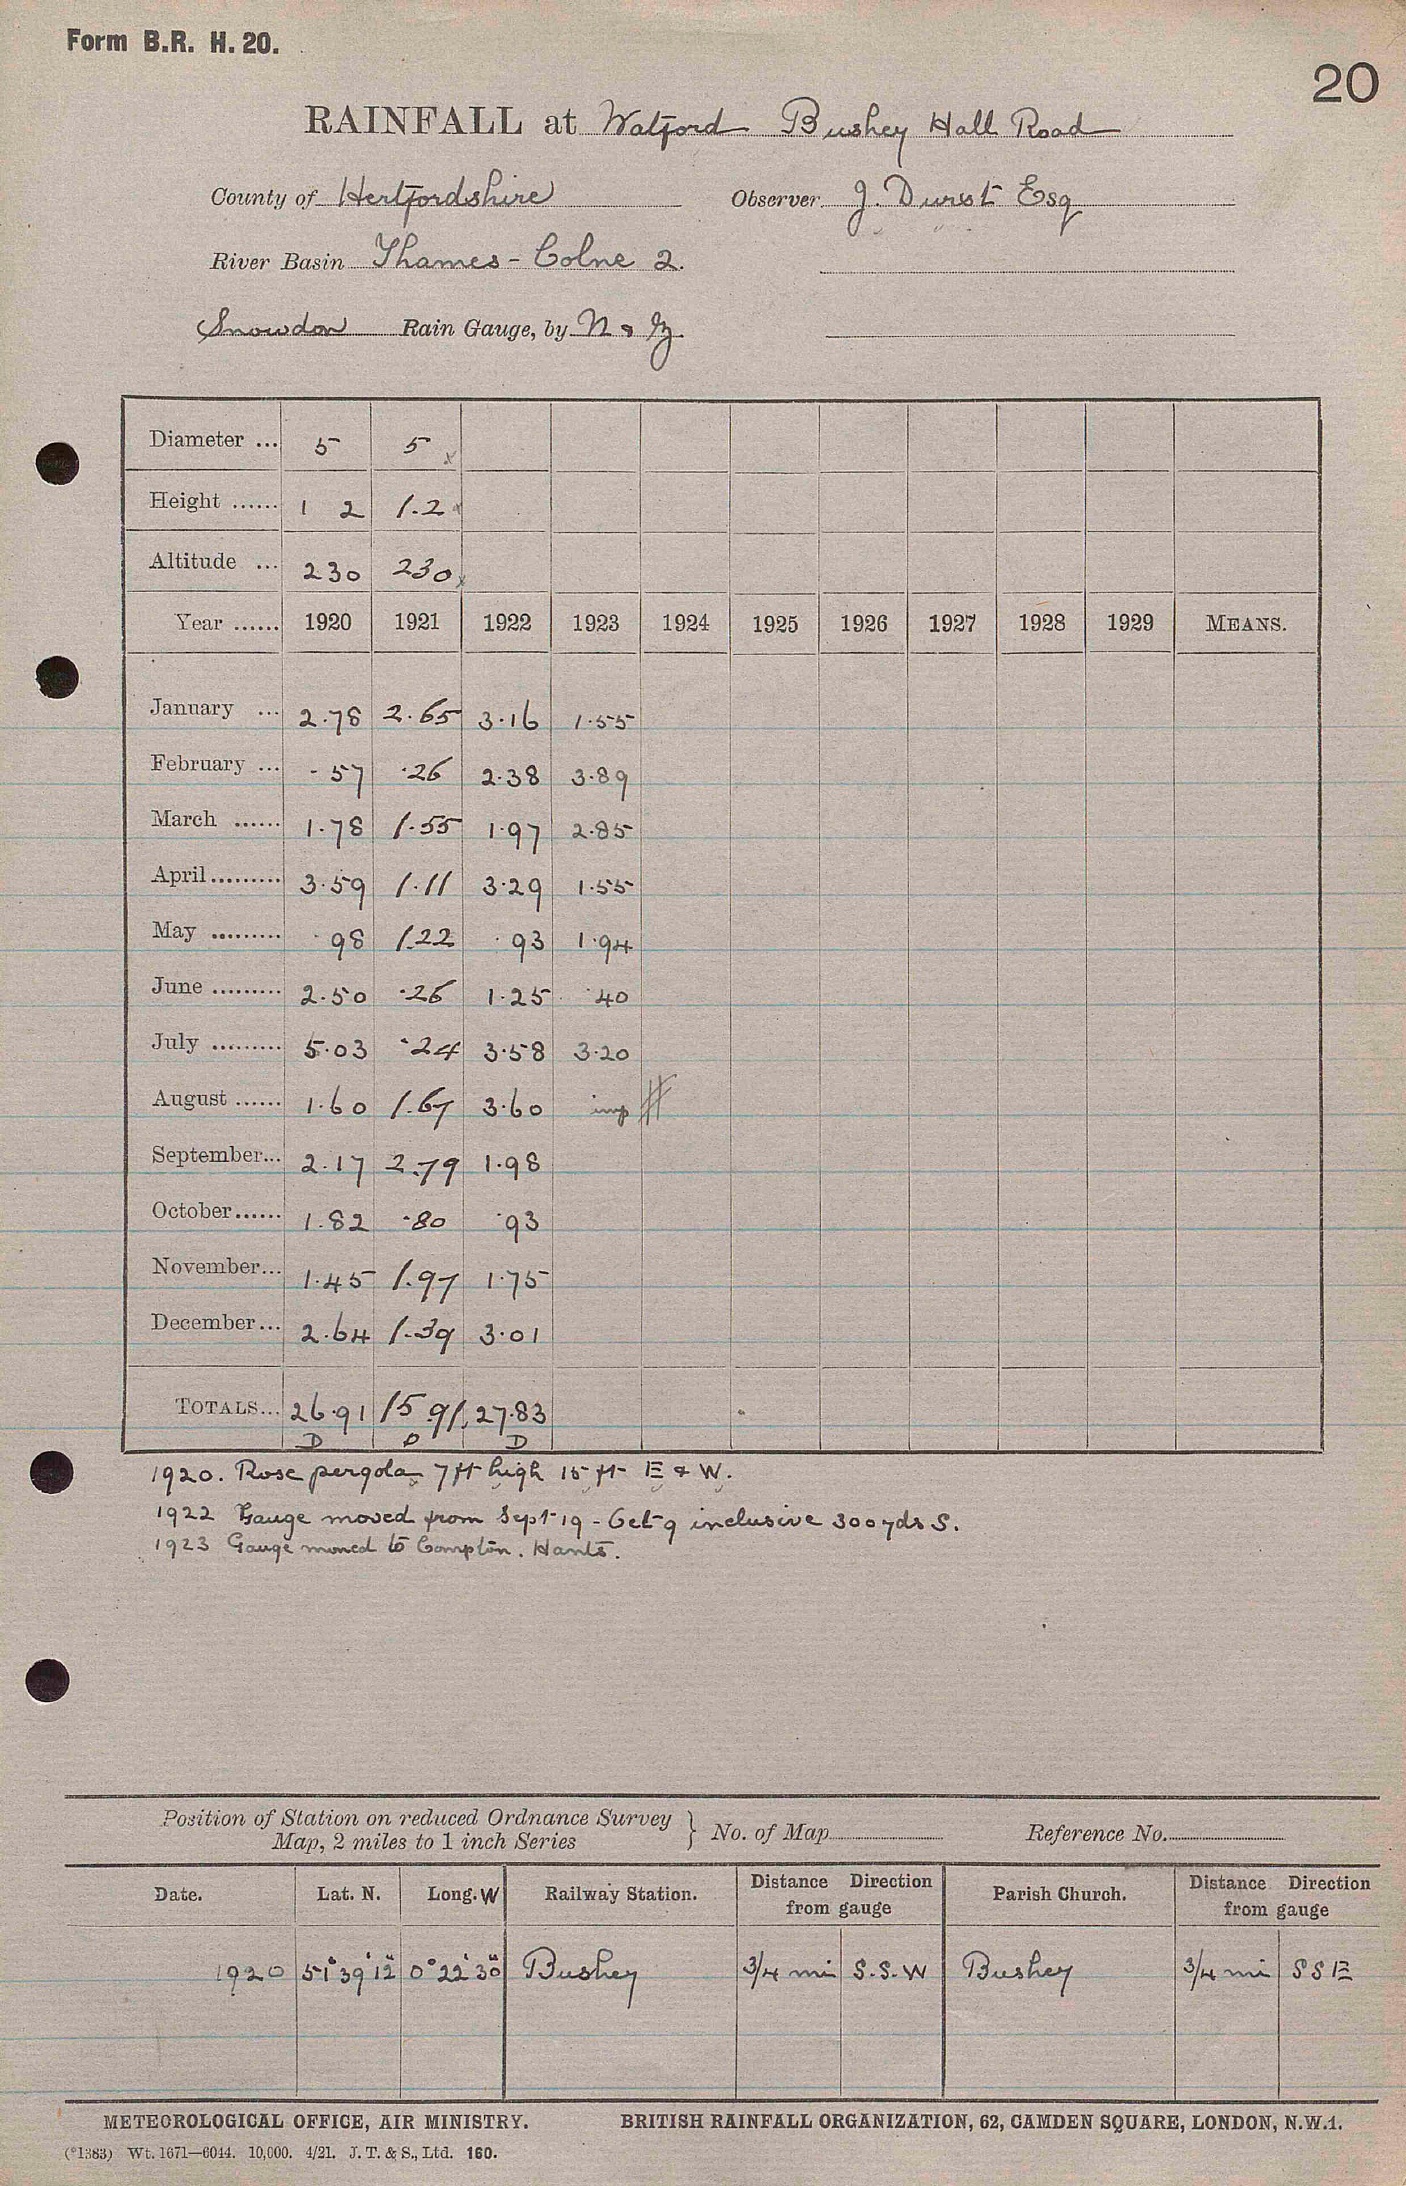 Form B.R. H. 20.
20
RAINFALL at Watford Bushey Hall Road
County of Hertfordshire Observer J. Durst Esq
River Basin Thames - Colne 2.
Snowdon Rain Gauge, by N & Z
Diameter ... 5 5 x
Height ...... 1 2 1.2 x
Altitude ... 230 230 x
Year ...... 1920 1921 1922 1923 1924 1925 1926 1927 1928 1929 MEANS.
January ... 2.78 2.65 3.16 1.55
February ... .57 .26 2.38 3.89
March ...... 1.78 1.55 1.97 2.85
April ......... 3.59 1.11 3.29 1.55
May ......... .98 1.22 .93 1.94
June ......... 2.50 .26 1.25 .40
July ......... 5.03 .24 3.58 3.20
August ...... 1.60 1.67 3.60 imp #
September... 2.17 2.79 1.98
October...... 1.82 .80 .93
November... 1.45 1.97 1.75
December... 2.64 1.39 3.01
TOTALS... 26.91 15.91 27.83
D D D
1920. Rose pergola 7 ft high 15 ft E & W.
1922 Gauge moved from Sept 19 - Oct 9 inclusive 300 yds S.
1923 Gauge moved to Compton. Hants.
Position of Station on reduced Ordnance Survey
Map, 2 miles to 1 inch Series } No. of Map Reference No.
Date. Lat. N. Long. W Railway Station. Distance Direction from gauge Parish Church. Distance Direction from gauge
1920 51° 39' 12" 0° 22' 30" Bushey 3/4 mi S.S.W Bushey 3/4 mi S S E
METEOROLOGICAL OFFICE, AIR MINISTRY. BRITISH RAINFALL ORGANIZATION, 62, CAMDEN SQUARE, LONDON, N.W.1.
(*1383) Wt. 1671—6044. 10,000. 4/21. J. T. & S., Ltd. 160.